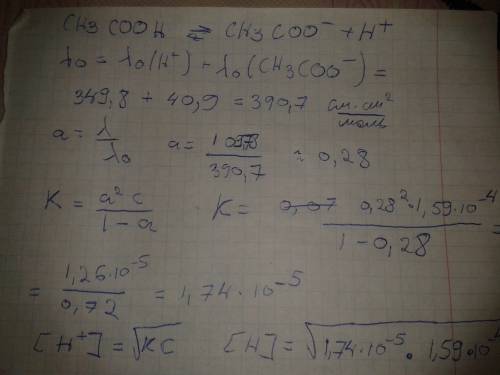 CH3COOH ⇌ CH3COO⁻ + H⁺
λ0 = λ0(H⁺) + λ0(CH3COO⁻) =
349,8 + 40,9 = 390,7 см·см²/моль
a = λ/λ0 a = /390,7 ≈ 0,28
K = a²c/(1-a) K = 0,28²·1,59·10⁻⁴/(1-0,28) =
= 1,25·10⁻⁵/0,72 = 1,74·10⁻⁵
[H⁺] = √KC [H] = √1,74·10⁻⁵·1,59·10